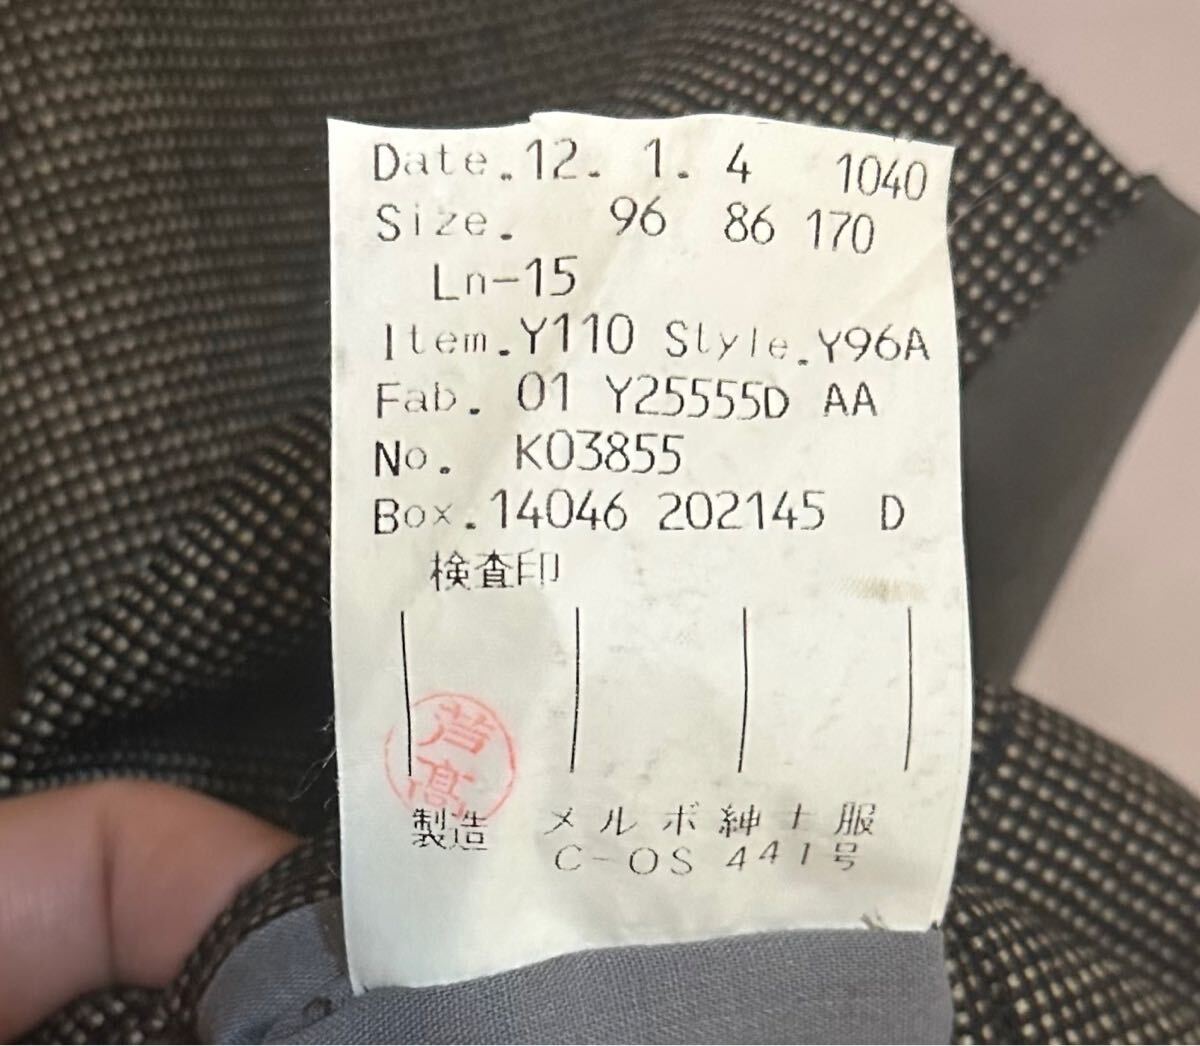 Date.12. 1. 4 1040
Size. 96 86 170
Ln-15
Item.Y110 Style.Y96A
Fab. 01 Y25555D AA
No. K03855
Box.14046 202145 D
検査印
芦髙
製造 メルボ紳士服
C-OS 441号